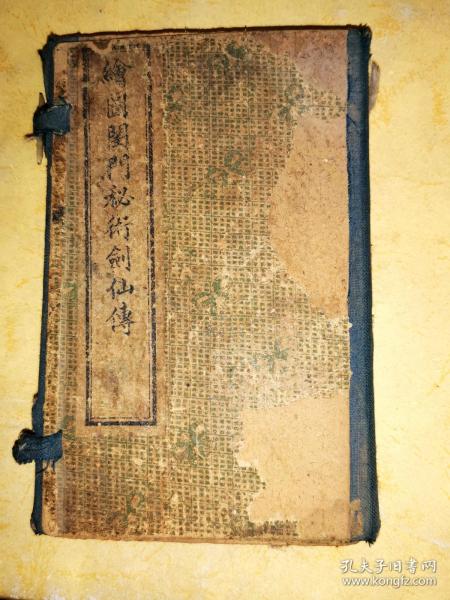 繪圖閨門秘術劍仙傳
孔夫子旧书网
www.kongfz.com